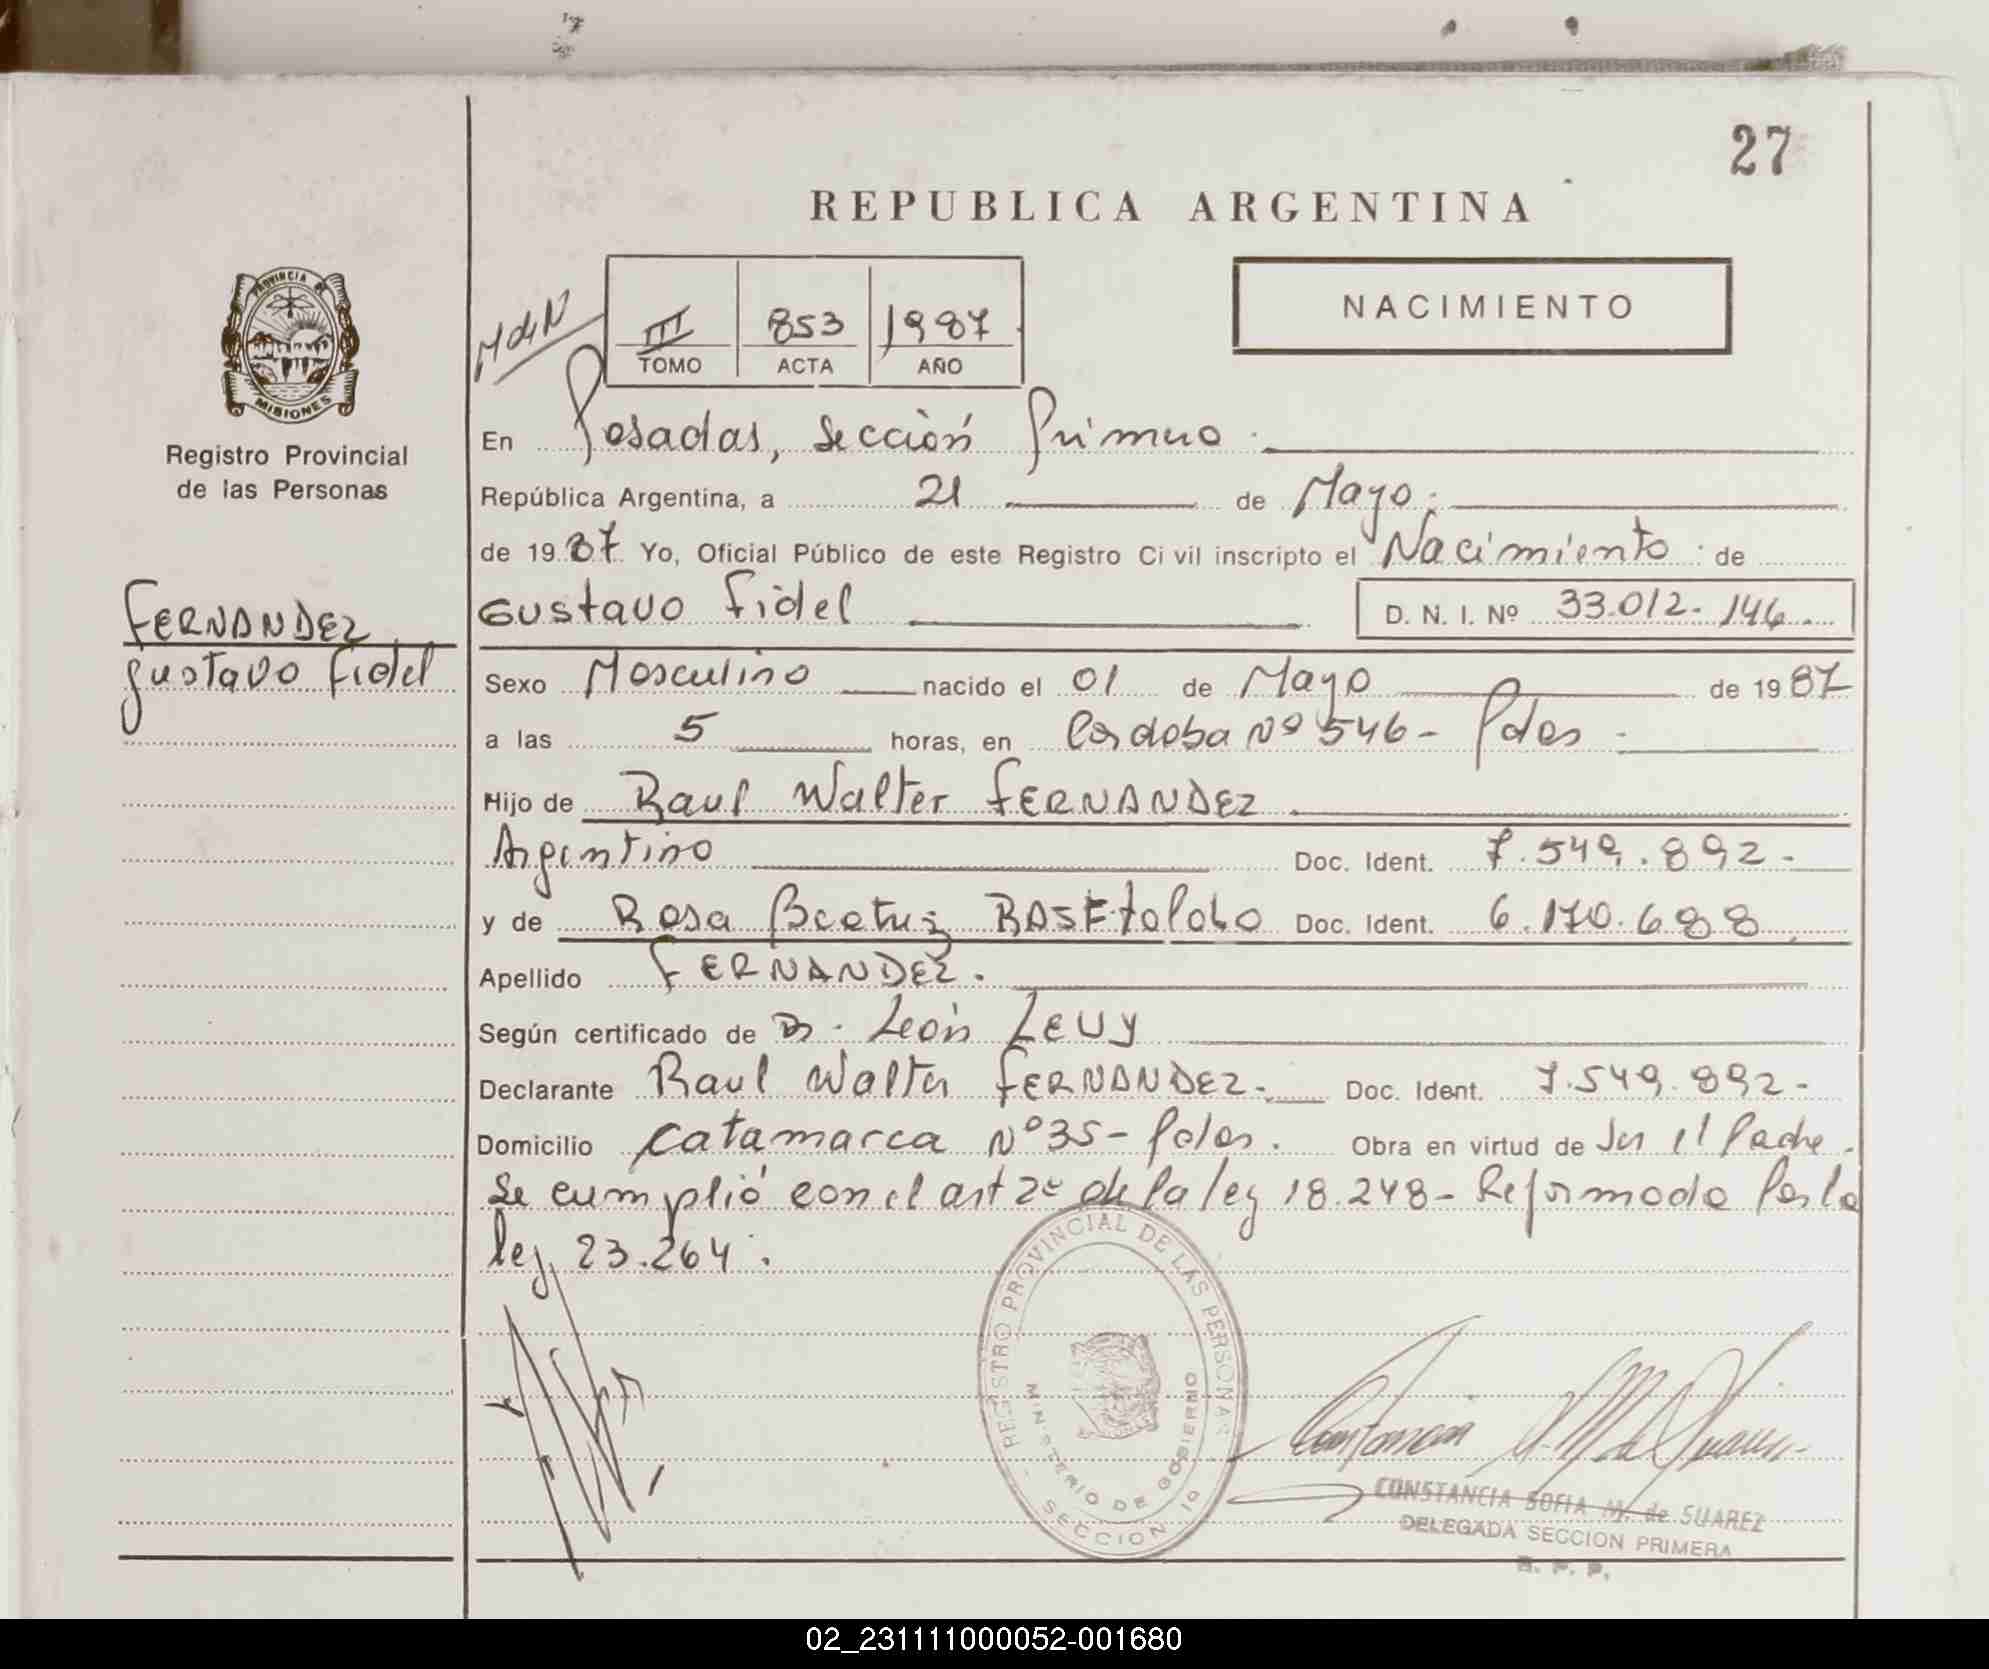 27
REPUBLICA ARGENTINA
PROVINCIA DE
MISIONES
Registro Provincial
de las Personas
MdN
III 853 1987
TOMO ACTA AÑO
NACIMIENTO
En Posadas, Sección Primera
República Argentina, a 21 de Mayo
de 1987 Yo, Oficial Público de este Registro Ci vil inscripto el Nacimiento de
FERNANDEZ
Gustavo Fidel
Gustavo Fidel D. N. I. Nº 33.012.146
Sexo Masculino nacido el 01 de Mayo de 1987
a las 5 horas, en Cordoba Nº 546 - Pdas
Hijo de Raul Walter FERNANDEZ
Argentino Doc. Ident. 7.549.892-
y de Rosa Beatriz Doc. Ident. 6.170.688
Apellido FERNANDEZ.
Según certificado de Dr. León Levy
Declarante Raul Walter FERNANDEZ- Doc. Ident. 7.549.892-
Domicilio Catamarca Nº 35 - Pdas. Obra en virtud de Ser el Padre.
Se cumplió con el art 2º de la ley 18.248- Reformada Por la
ley 23.264.
REGISTRO PROVINCIAL DE LAS PERSONAS
MINISTERIO DE GOBIERNO
SECCION 1º
CONSTANCIA SOFIA M. de SUAREZ
DELEGADA SECCION PRIMERA
R. P. P.
02_231111000052-001680